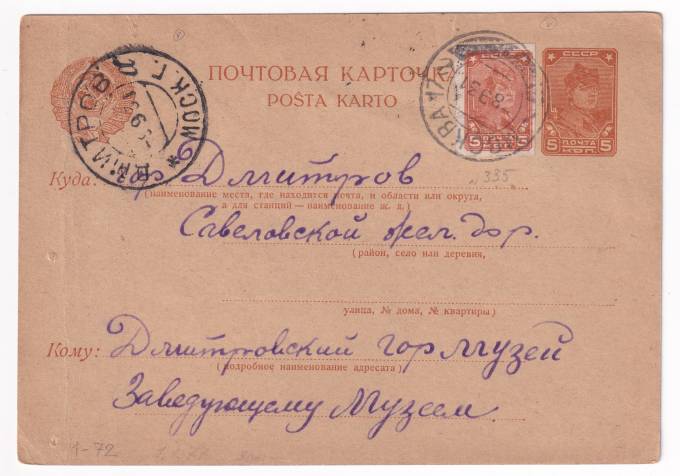 ПОЧТОВАЯ КАРТОЧ
POŜTA KARTO
СССР
ПОЧТА
5 КОП. 5
5 5
ДМИТРОВ МОСК. Г.
№335
Куда: гр. Дмитров
(наименование места, где находится почта, и области или округа,
а для станций — наименование ж. д.)
Савеловской жел. дор.
(район, село или деревня,
улица, № дома, № квартиры)
Кому: Дмитровский Гор Музей
(подробное наименование адресата)
Заведующему Музеем
1-72